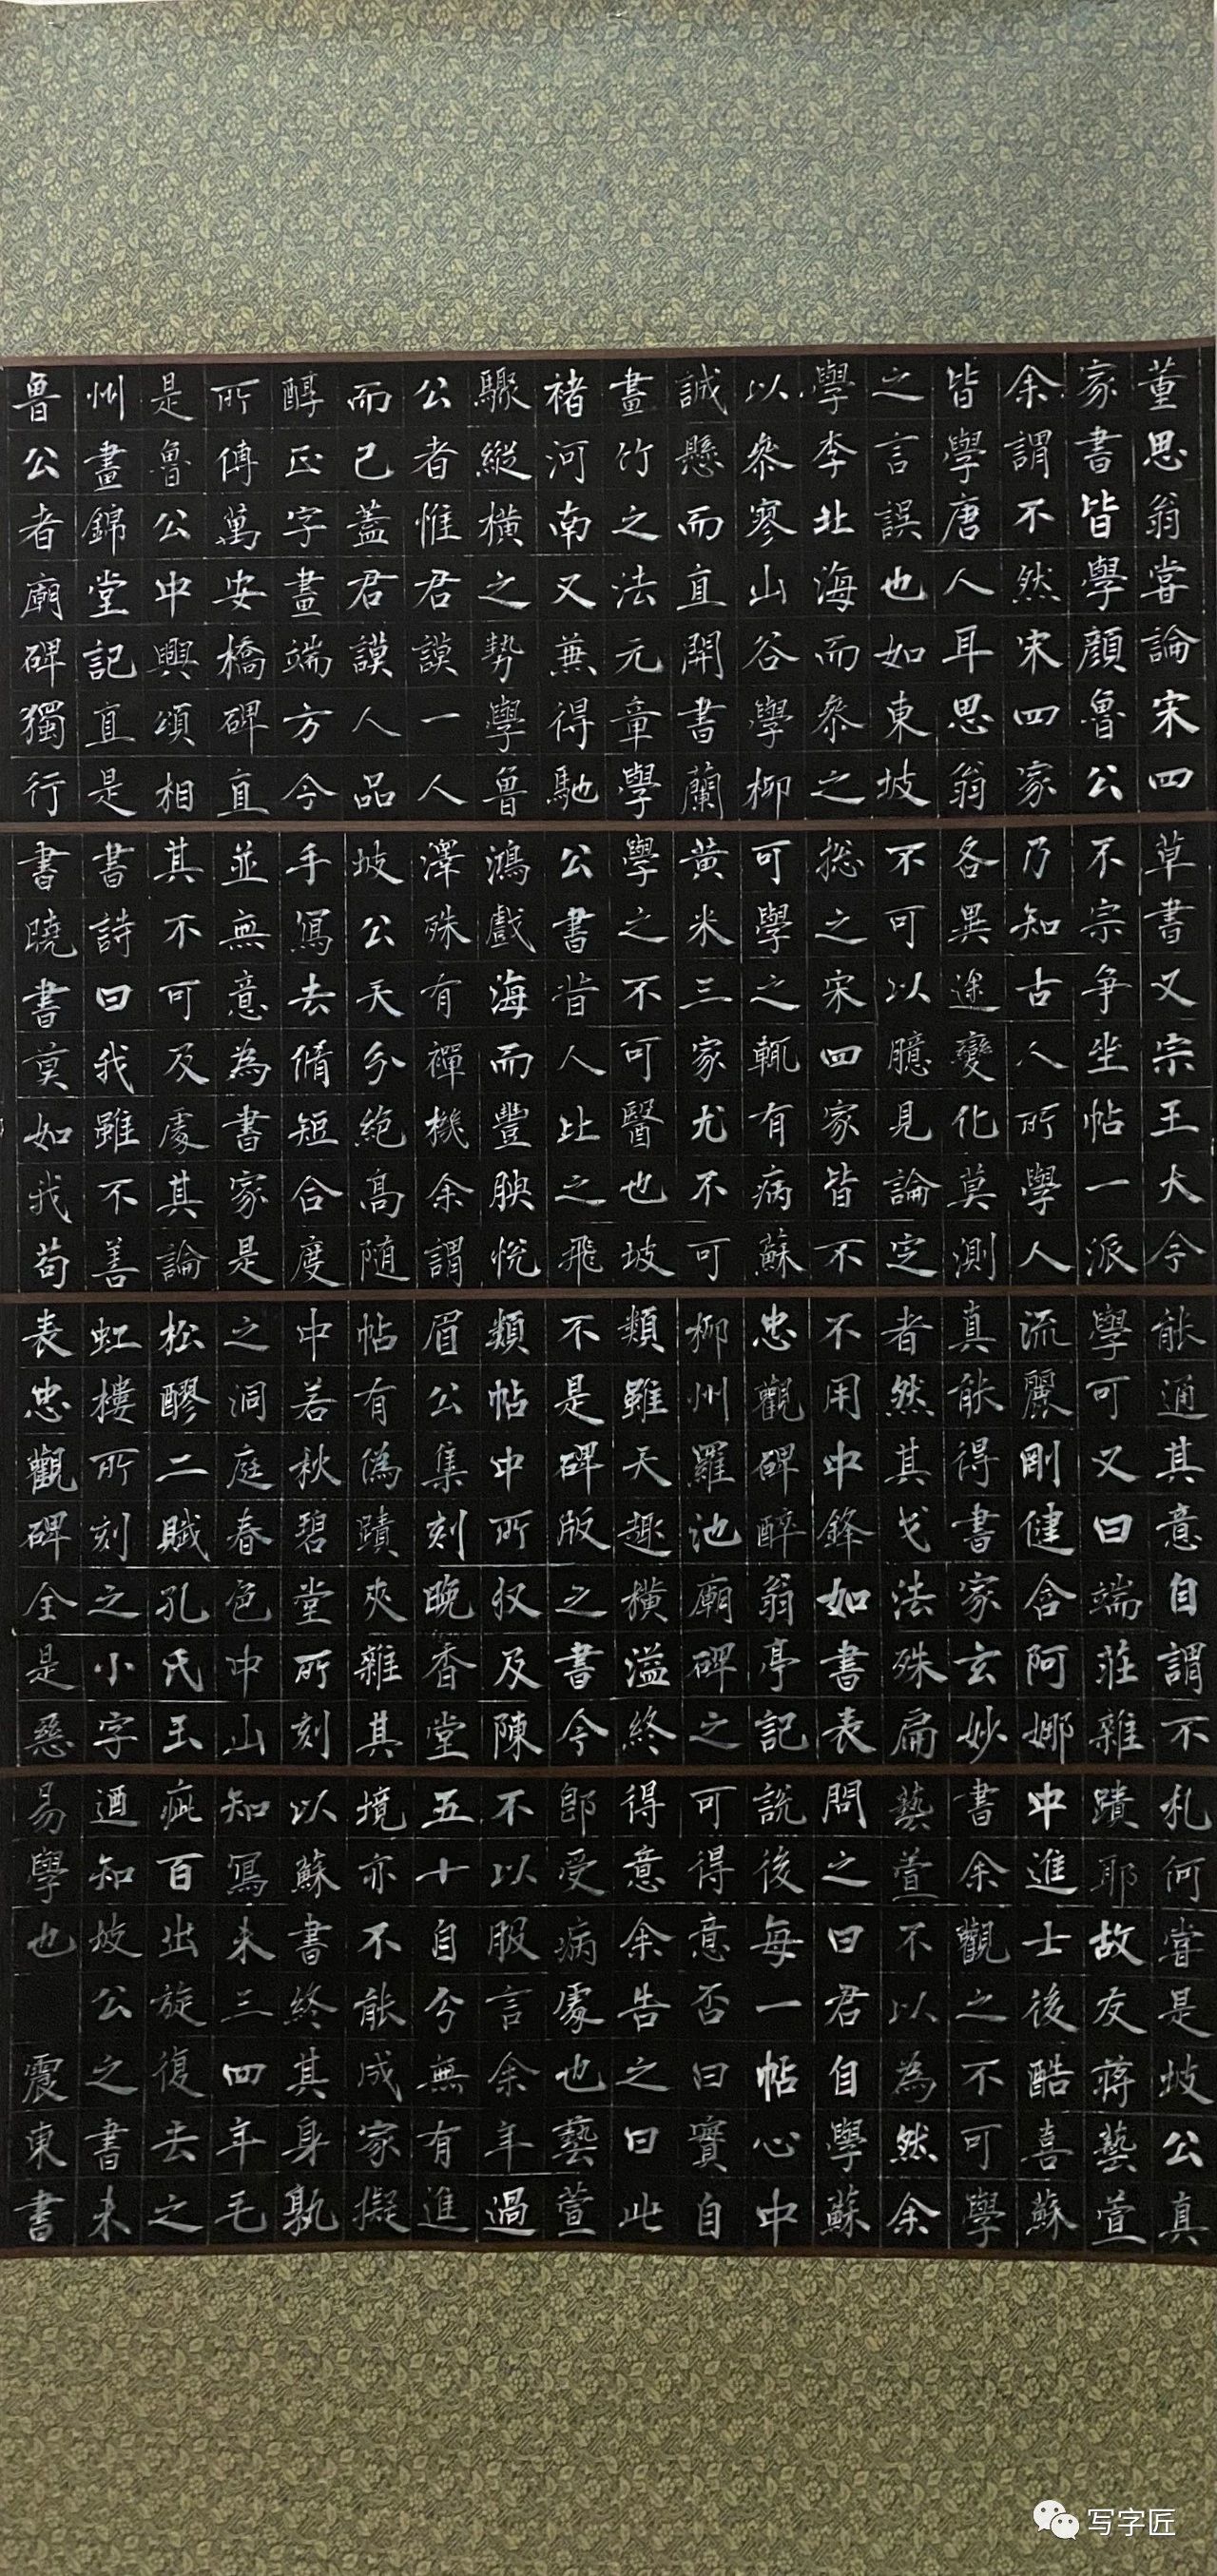 董思翁嘗論宋四
家書皆學顏魯公
余謂不然宋四家
皆學唐人耳思翁
之言誤也如東坡
學李北海而參之
以參寥山谷學柳
誠懸而直開書蘭
畫竹之法元章學
褚河南又兼得馳
驟縱橫之勢學魯
公者惟君謨一人
而已蓋君謨人品
醇正字畫端方今
所傳萬安橋碑直
是魯公中興頌相
州畫錦堂記直是
魯公者廟碑獨行
草書又宗王大令
不宗爭坐帖一派
乃知古人所學人
各異途變化莫測
不可以臆見論定
捴之宋四家皆不
可學之輒有病蘇
黃米三家尤不可
學之不可醫也坡
公書昔人比之飛
鴻戲海而豐腴悅
澤殊有禪機余謂
坡公天分絕高随
手寫去脩短合度
並無意為書家是
其不可及處其論
書詩曰我雖不善
書曉書莫如我苟
能通其意自謂不
學可又曰端莊雜
流麗剛健含阿娜
真能得書家玄妙
者然其戈法殊扁
不用中鋒如書表
忠觀碑醉翁亭記
柳州羅池廟碑之
類雖天趣橫溢終
不是碑版之書今
類帖中所収及陳
眉公集刻晚香堂
帖有偽蹟夾雜其
中若秋碧堂所刻
之洞庭春色中山
松醪二賦孔氏玉
虹樓所刻之小字
表忠觀碑全是惡
札何嘗是坡公真
蹟耶故友蔣藝萱
中進士後酷喜蘇
書余觀之不可學
藝萱不以為然余
問之曰君自學蘇
說後每一帖心中
可得意否曰實自
得意余告之曰此
即受病處也藝萱
不以服言余年過
五十自分無有進
境亦不能成家擬
以蘇書終其身孰
知寫未三四年毛
疵百出旋復去之
迺知坡公之書未
易學也 震東書
写字匠